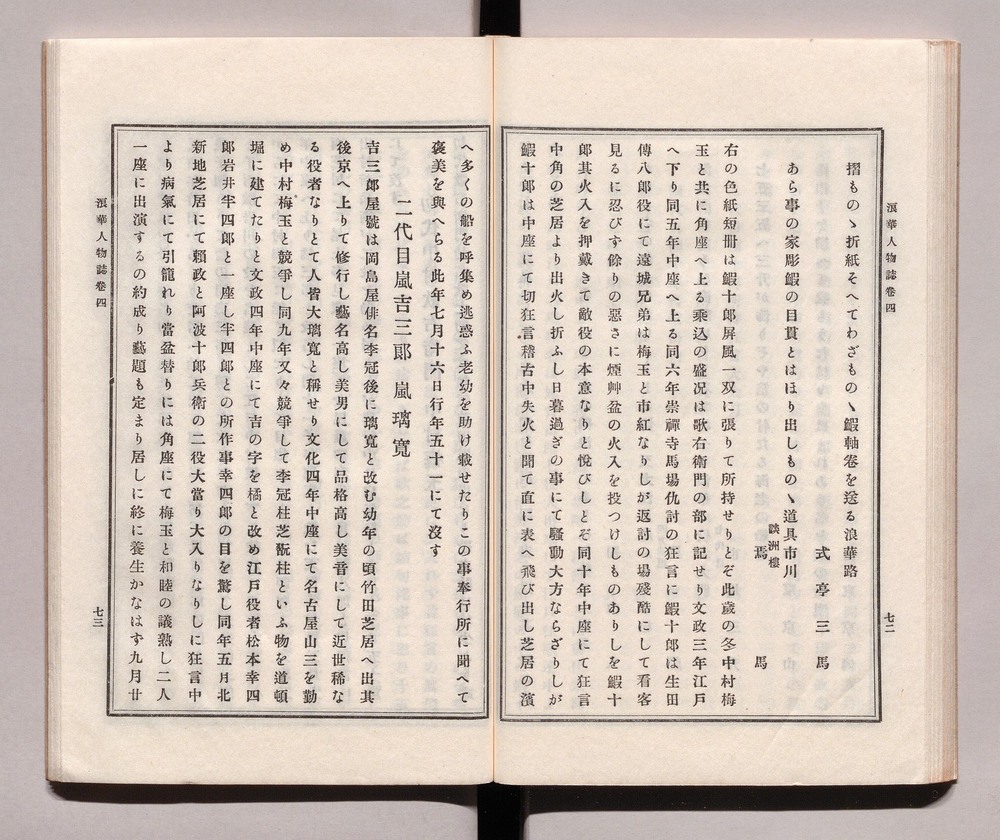 浪華人物誌卷四
七二
摺ものゝ折紙そへてわざもの、鰕軸卷を送る浪華路
式亭三馬
あら事の家彫鰕の目貫とはほり出しもの、道具市川
談洲樓
焉馬
右の色紙短册は鰕十郎屏風一双に張りて所持せりとぞ此歲の冬中村梅
玉と共に角座へ上る乘込の盛况は歌右衛門の部に記せり文政三年江戶
へ下り同五年中座へ上る同六年崇禪寺馬場仇討の狂言に鰕十郎は生田
傳八郎役にて遠城兄弟は梅玉と市紅なりしが返討の場殘酷にして看客
見るに忍びず餘りの惡さに煙艸盆の火入を投つけしものありしを鰕十
郎其火入を押戴きて敵役の本意なりと悅びしとぞ同十年中座にて狂言
中角の芝居より出火し折ふし日暮過ぎの事にて騷動大方ならざりしが
鰕十郎は中座にて切狂言稽古中失火と聞て直に表へ飛び出し芝居の濱
へ多くの船を呼集め逃惑ふ老幼を助け載せたりこの事奉行所に聞へて
褒美を與へらる此年七月十六日行年五十一にて沒す
二代目嵐吉三郎 嵐璃寬
吉三郎屋號は岡島屋俳名李冠後に璃寬と改む幼年の頃竹田芝居へ出其
後京へ上りて修行し藝名高し美男にして品格高し美音にして近世稀な
る役者なりとて人皆大璃寬と稱せり文化四年中座にて名古屋山三を勤
め中村梅玉と競爭し同九年又々競爭して李冠柱芝翫柱といふ物を道頓
堀に建てたりと文政四年中座にて吉の字を橘と改め江戶役者松本幸四
郎岩井半四郎と一座し半四郎との所作事幸四郎の目を驚し同年五月北
新地芝居にて賴政と阿波十郎兵衛の二役大當り大入りなりしに狂言中
より病氣にて引籠れり當盆替りには角座にて梅玉と和睦の議熟し二人
一座に出演するの約成り藝題も定まり居しに終に養生かなはず九月廿
浪華人物誌卷四
七三